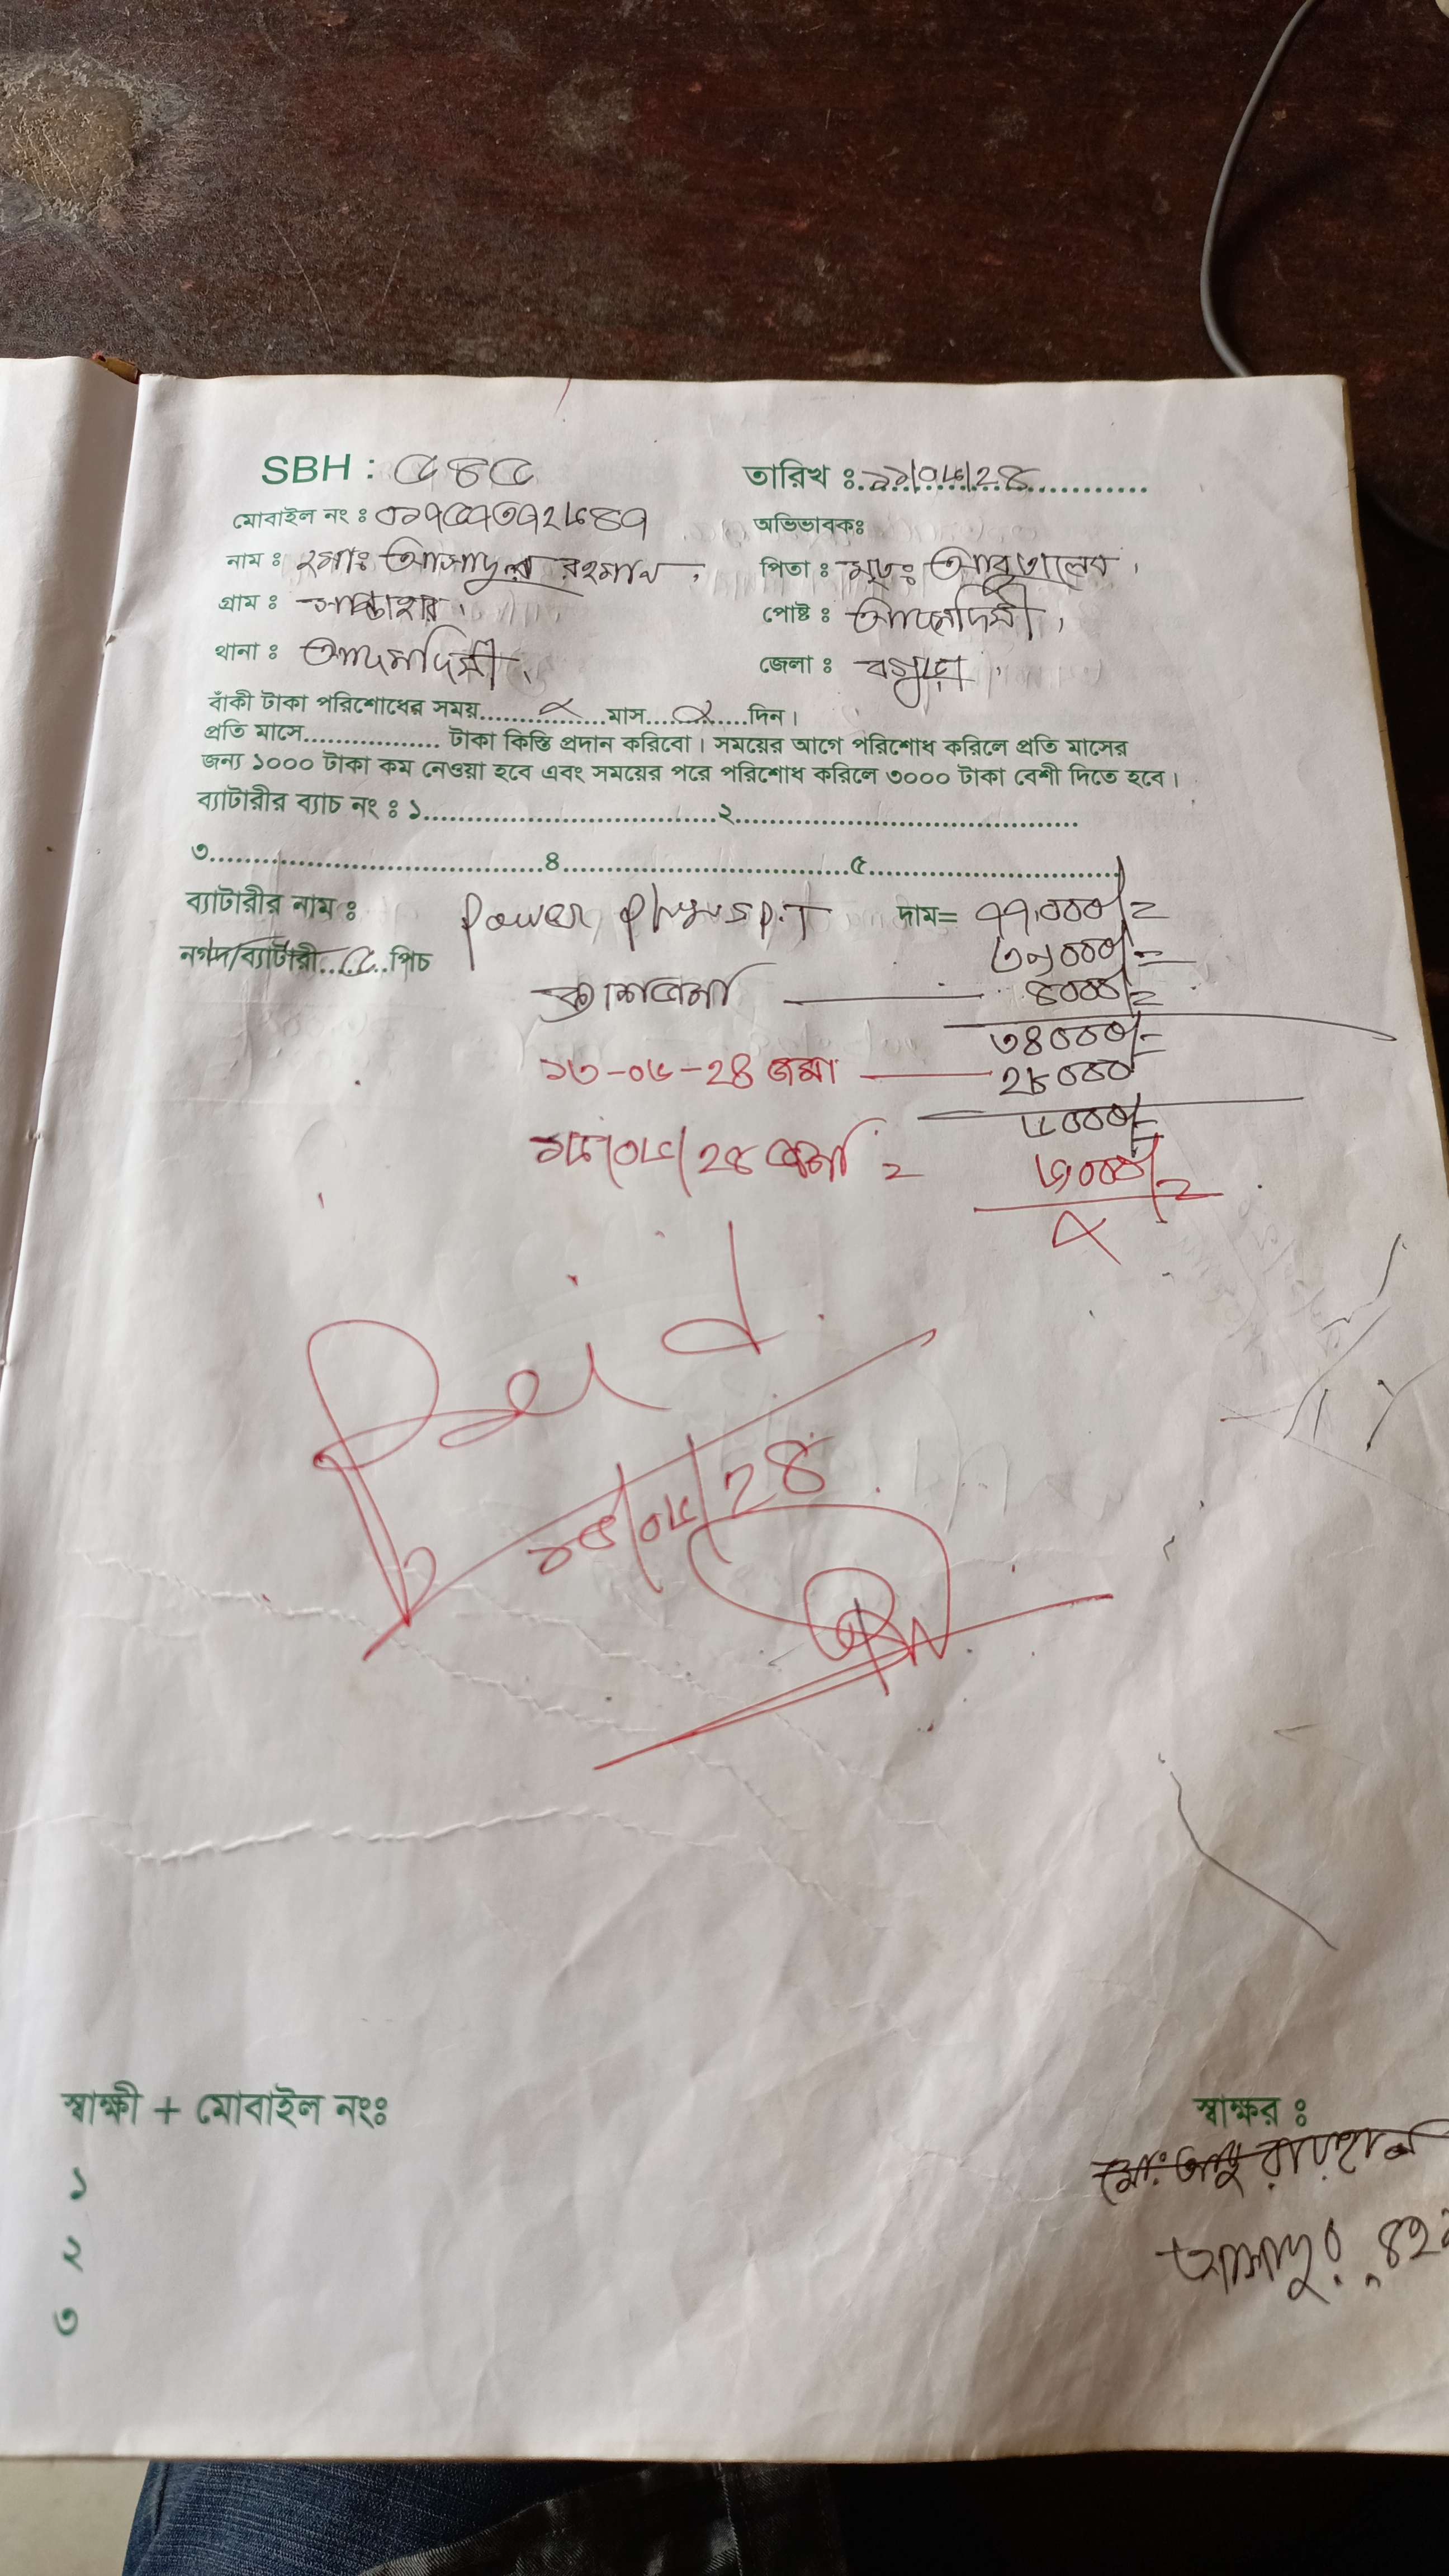 SBH : ৫৪৫ তারিখ : ১১/০৬/২৪
মোবাইল নং : ০১৭৫৭৩৭২৬৪৭ অভিভাবকঃ
নাম : মোঃ আসাদুর রহমান, পিতা : মৃতঃ আবু তালেব,
গ্রাম : সান্তাহার, পোষ্ট : আদমদিঘী,
থানা : আদমদিঘী, জেলা : বগুড়া,
বাঁকী টাকা পরিশোধের সময়..................মাস..................দিন।
প্রতি মাসে.................. টাকা কিস্তি প্রদান করিবো। সময়ের আগে পরিশোধ করিলে প্রতি মাসের
জন্য ১০০০ টাকা কম নেওয়া হবে এবং সময়ের পরে পরিশোধ করিলে ৩০০০ টাকা বেশী দিতে হবে।
ব্যাটারীর ব্যাচ নং : ১..................২..................
৩..................৪..................৫..................
ব্যাটারীর নাম : Power Plus দাম= ৭৭,০০০/=
নগদ/ব্যাটারী...৫...পিচ
৪০০০/=
৩৪০০০/=
১৩-০৬-২৪ জমা ২৮০০০
৬০০০/=
/০৬/২৪ ৬০০০/=
Paid
/০৬/২৪
স্বাক্ষী + মোবাইল নংঃ স্বাক্ষর :
১
২
৩